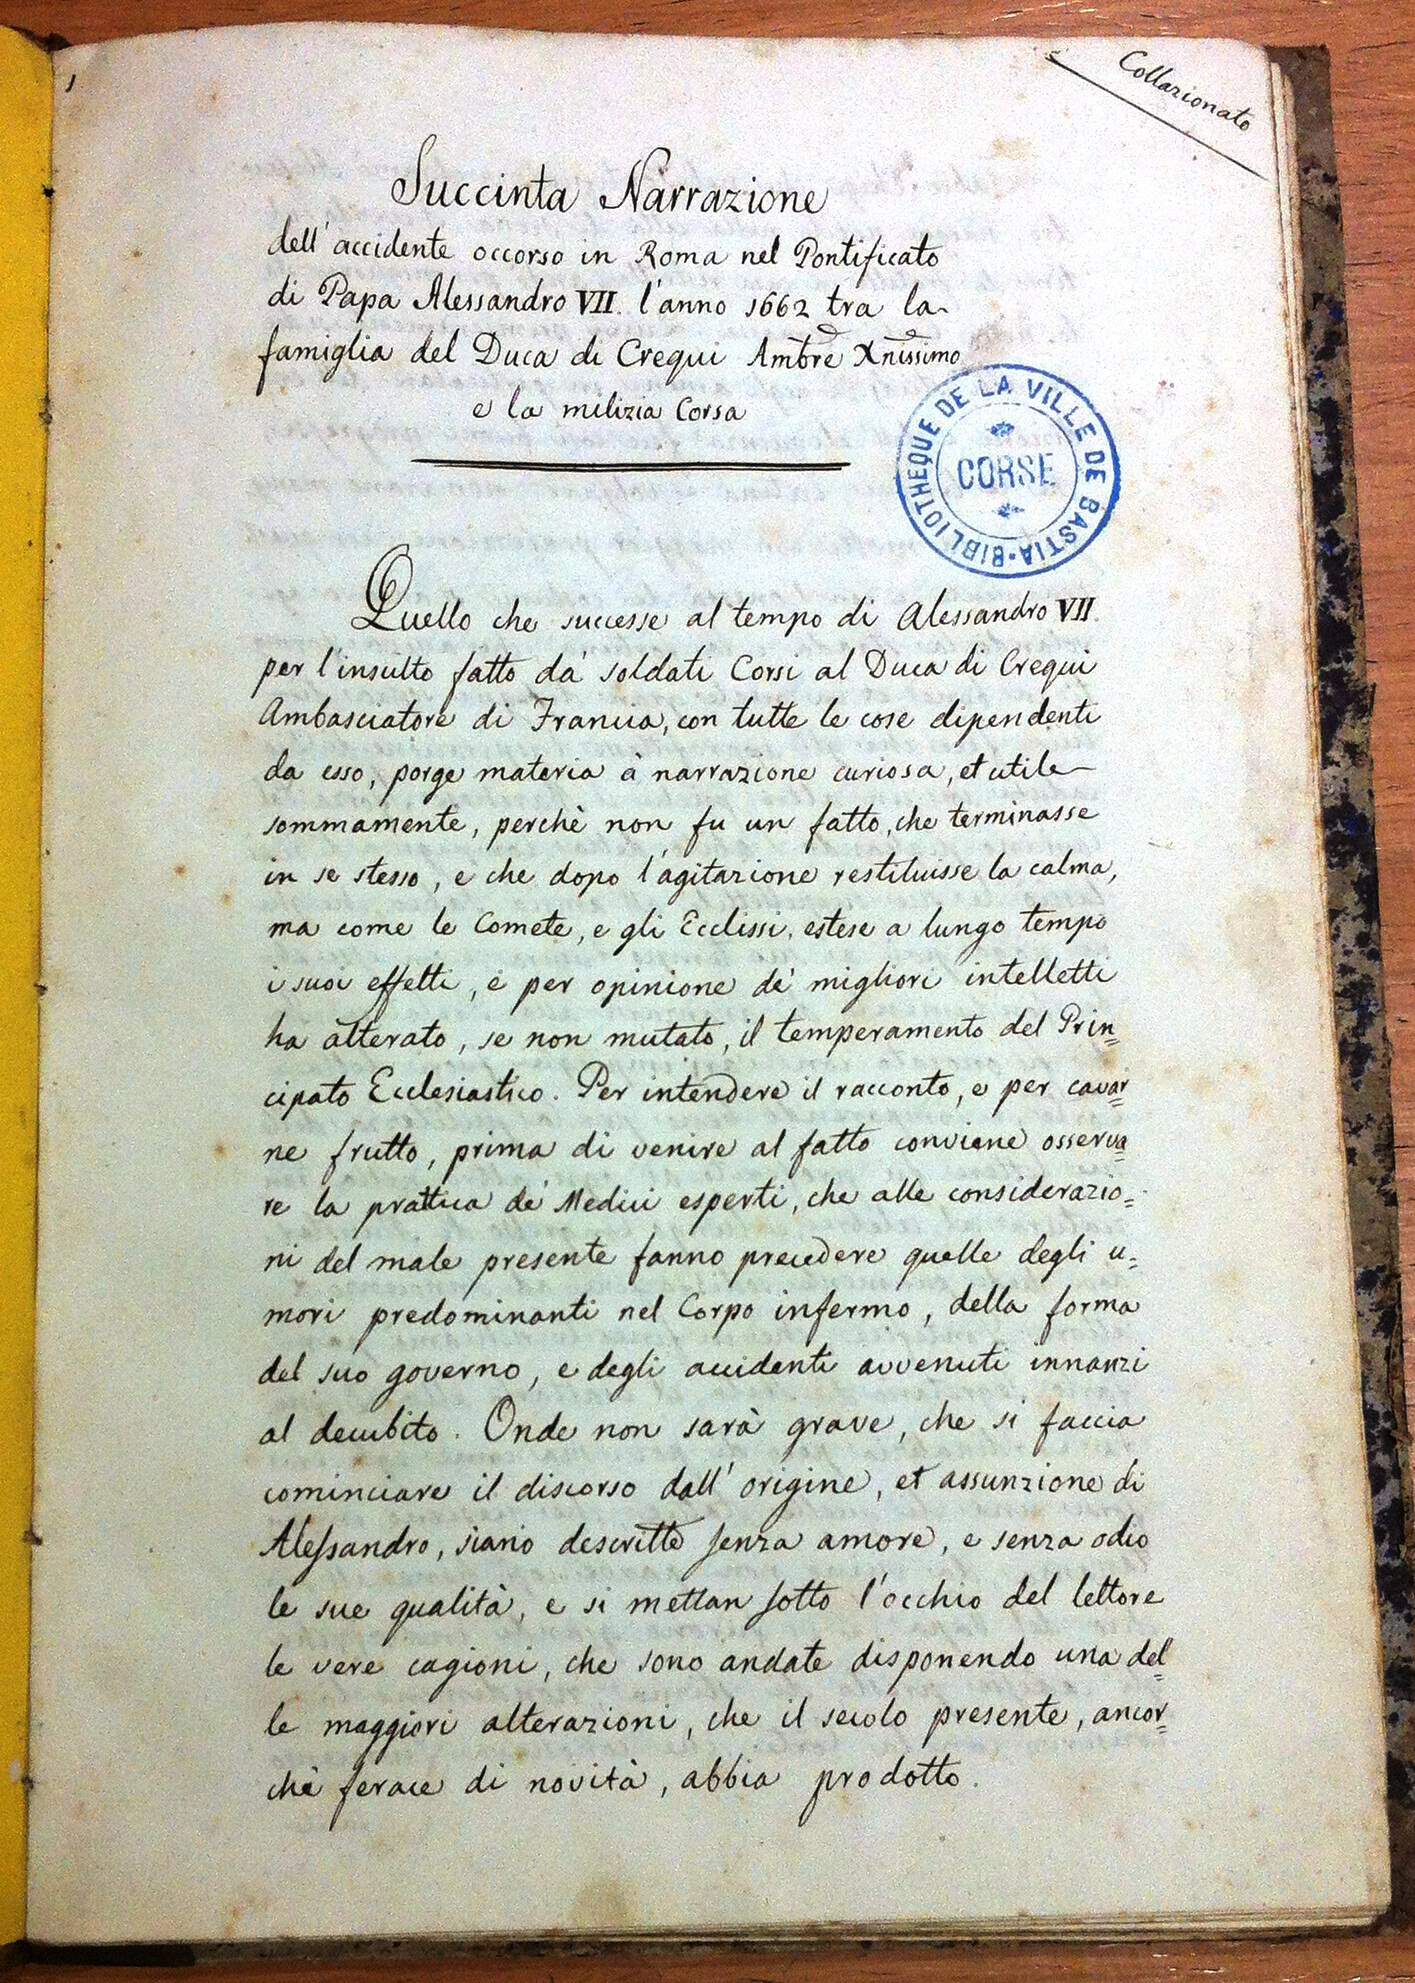 1
Collazionato
Succinta Narrazione
dell'accidente occorso in Roma nel Pontificato
di Papa Alessandro VII. l'anno 1662 tra la
famiglia del Duca di Crequi Ambre Xnissimo
e la milizia Corsa
BIBLIOTHEQUE DE LA VILLE DE BASTIA
CORSE
Quello che successe al tempo di Alessandro VII.
per l'insulto fatto da' soldati Corsi al Duca di Crequi
Ambasciatore di Francia, con tutte le cose dipendenti
da esso, porge materia à narrazione curiosa, et utile
sommamente, perchè non fu un fatto, che terminasse
in se stesso, e che dopo l'agitazione restituisse la calma,
ma come le Comete, e gli Ecclissi, estese a lungo tempo
i suoi effetti, e per opinione de' migliori intelletti
ha alterato, se non mutato, il temperamento del Prin=
cipato Ecclesiastico. Per intendere il racconto, e per cavar=
ne frutto, prima di venire al fatto conviene osserva=
re la prattica de' Medici esperti, che alle considerazio=
ni del male presente fanno precedere quelle degli u=
mori predominanti nel Corpo infermo, della forma
del suo governo, e degli accidenti avvenuti innanzi
al decubito. Onde non sarà grave, che si faccia
cominciare il discorso dall'origine, et assunzione di
Alessandro, siano descritte senza amore, e senza odio
le sue qualità, e si mettan sotto l'occhio del lettore
le vere cagioni, che sono andate disponendo una del=
le maggiori alterazioni, che il secolo presente, ancor=
chè ferace di novità, abbia prodotto.